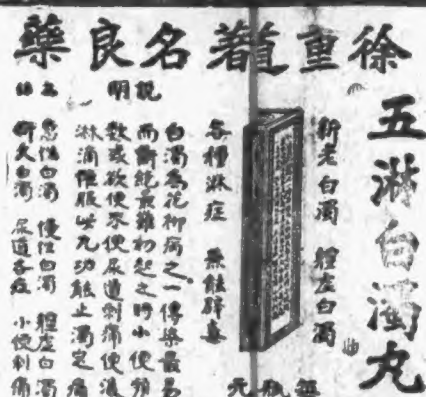 徐重道著名良藥
五淋白濁丸
新老白濁 體虛白濁
各種淋症 兼能辟毒
每瓶 元
說明
白濁為花柳病之一傳染最易
而斷絕最難初起之時小便頻
數或欲便不便尿道刺痛便
淋滴惟服此丸功能止濁定痛
主治
急性白濁 慢性白濁 體虛白濁
新久白濁 尿道各症 小便刺痛